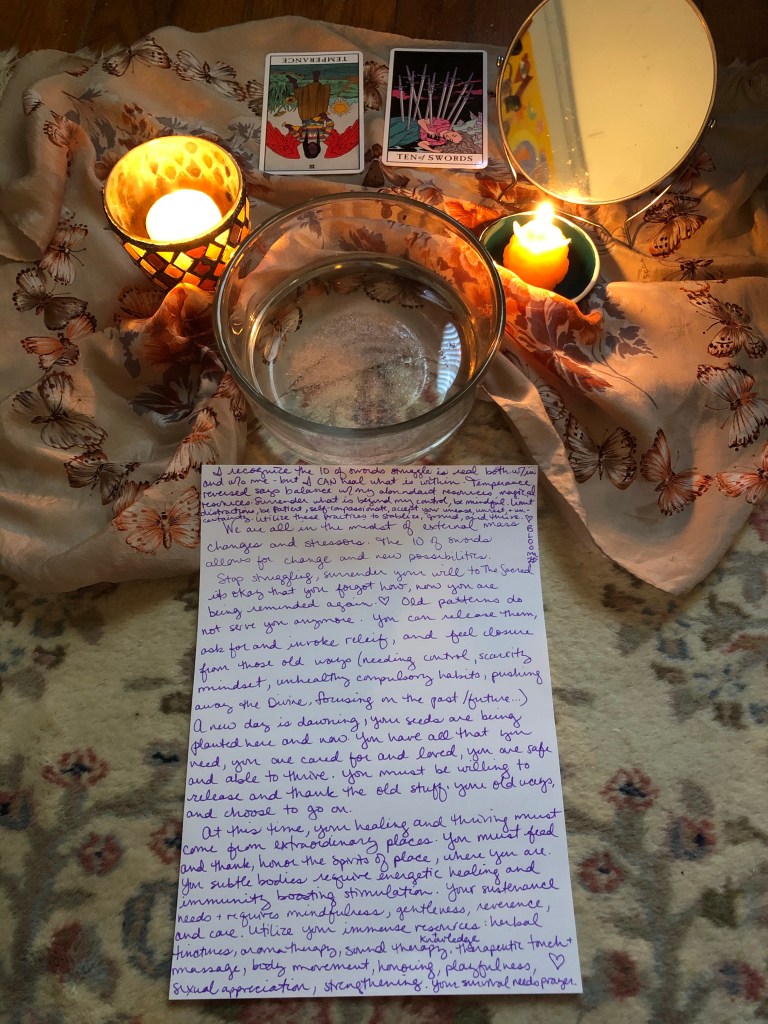 TEMPERANCE
TEN of SWORDS
I recognize the 10 of swords struggle is real both w/in
and w/o me - but I CAN heal what is within. Temperance
reversed says balance w/ my abundant resources, magical
resources. Surrender what is beyond my control, be mindful, limit
distractions, be patient, self-compassionate, accept your unease, unrest, + un-
certainty. Utilize these practices to stabilize, ground, and thrive.
We are all in the midst of external mass
changes and stressors. The 10 of swords
allows for change and new possibilities.
Stop struggling, surrender your will to The Sacred
it's okay that you forgot how, now you are
being reminded again. ♡ Old patterns do
not serve you anymore. You can release them,
ask for and invoke releif, and feel closure
from those old ways (needing control, scarcity
mindset, unhealthy compulsory habits, pushing
away the Divine, focusing on the past/future...)
A new day is dawning, your seeds are being
planted here and now. You have all that you
need, you are cared for and loved, you are safe
and able to thrive. You must be willing to
release and thank the old stuff, your old ways,
and choose to go on.
At this time, your healing and thriving must
come from extraordinary places. You must feed
and thank, honor the Spirits of place, where you are.
You subtle bodies require energetic healing and
immunity boosting stimulation. Your sustenance
needs + requires mindfulness, gentleness, reverence,
and care. Utilize your immense resources: herbal
knowledge
tinctures, aromatherapy, sound therapy, therapeutic touch +
massage, body movement, honoring, playfulness, ♡
sexual appreciation, strengthening. Your survival needs prayer.